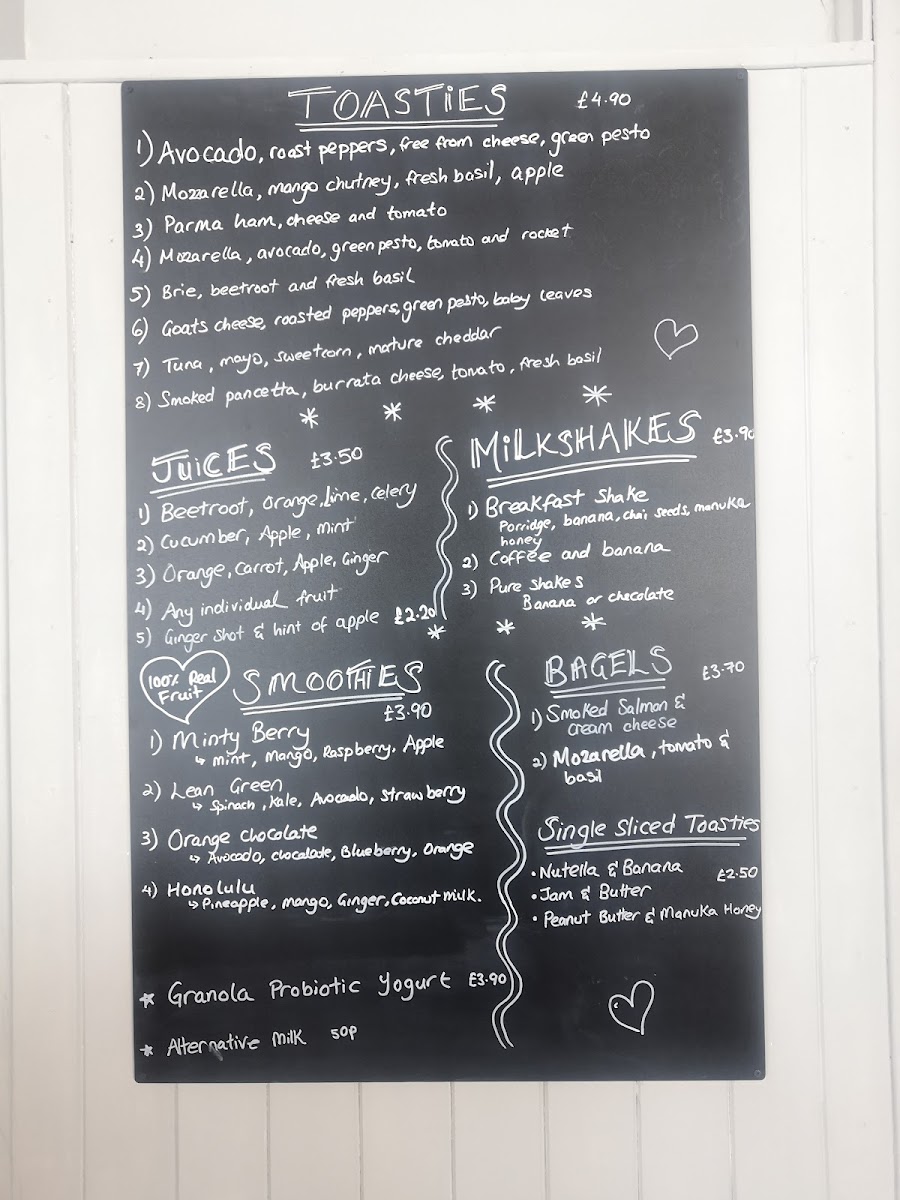 TOASTIES £4.90
1) Avocado, roast peppers, free from cheese, green pesto
2) Mozzarella, mango chutney, fresh basil, apple
3) Parma ham, cheese and tomato
4) Mozarella, avocado, green pesto, tomato and rocket
5) Brie, beetroot and fresh basil
6) Goats cheese, roasted peppers, green pesto, baby leaves
7) Tuna, mayo, sweetcorn, mature cheddar
8) Smoked pancetta, burrata cheese, tomato, fresh basil
JUICES £3.50
1) Beetroot, Orange, Lime, Celery
2) Cucumber, Apple, Mint
3) Orange, Carrot, Apple, Ginger
4) Any individual fruit
5) Ginger shot & hint of apple £2.20
MILKSHAKES £3.90
1) Breakfast Shake
Porridge, banana, chai seeds, manuka
honey
2) Coffee and banana
3) Pure Shakes
Banana or chocolate
100% Real
Fruit
SMOOTHIES
£3.90
1) Minty Berry
↳ mint, Mango, Raspberry, Apple
2) Lean Green
↳ Spinach, Kale, Avocado, Strawberry
3) Orange chocolate
↳ Avocado, chocolate, Blueberry, Orange
4) Honolulu
↳ Pineapple, mango, Ginger, Coconut milk.
BAGELS £3.70
1) Smoked Salmon &
cream cheese
2) Mozarella, tomato &
basil
Single Sliced Toasties
• Nutella & Banana £2.50
• Jam & Butter
• Peanut Butter & Manuka Honey
* Granola Probiotic Yogurt £3.90
* Alternative Milk 50p